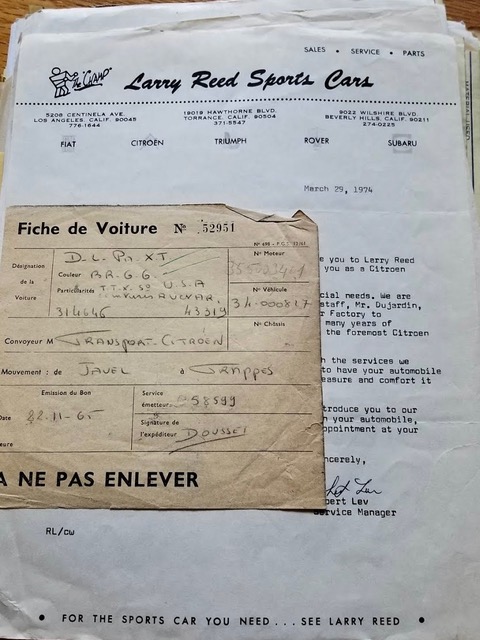 SALES • SERVICE • PARTS
The "CHAMP"
Larry Reed Sports Cars
5208 CENTINELA AVE. 19019 HAWTHORNE BLVD. 9022 WILSHIRE BLVD.
LOS ANGELES, CALIF. 90045 TORRANCE, CALIF. 90504 BEVERLY HILLS, CALIF. 90211
776-1644 371-5547 274-0225
FIAT CITROËN TRIUMPH ROVER SUBARU
March 29, 1974
e you to Larry Reed
you as a Citroen
cial needs. We are
staff, Mr. Dujardin,
r Factory to
many years of
the foremost Citroen
h the services we
to have your automobile
easure and comfort it
troduce you to our
n your automobile,
ppointment at your
ncerely,
bert Lev
ervice Manager
RL/cw
• FOR THE SPORTS CAR YOU NEED . . . SEE LARRY REED •
Fiche de Voiture Nº 52951
Désignation
de la
Voiture
D.L. PA XT
Couleur BR.G.G.
Particularités T.T.X. U.S.A
314646 43319
Nº Moteur
Nº Véhicule
34-000817
Nº Châssis
Convoyeur M TRANSPORT-CITROËN
Mouvement : de JAVEL à TRAPPES
Emission du Bon
Date 22-11-65
eure
Service
émetteur 58599
Signature de
l'expéditeur DOUSSET
A NE PAS ENLEVER